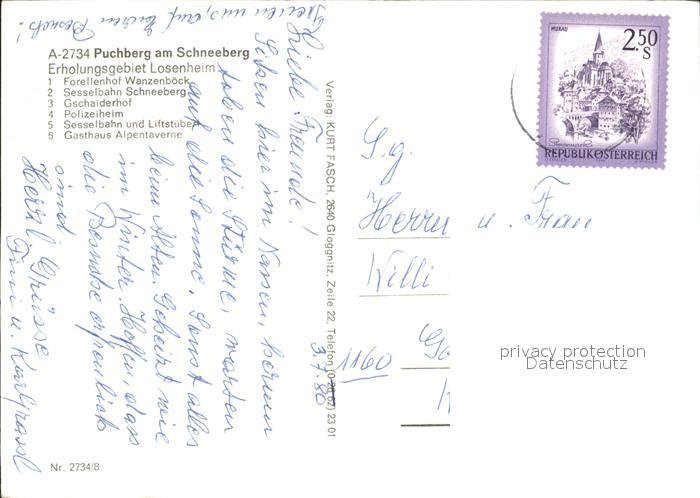 A-2734 Puchberg am Schneeberg
Erholungsgebiet Losenheim
1 Forellenhof Wanzenböck
2 Sesselbahn Schneeberg
3 Gschaiderhof
4 Polizeiheim
5 Sesselbahn und Liftstüberl
6 Gasthaus Alpentaverne
Liebe Freunde!
Sitzen hier im
toben die Stürme, warten
auf die Sonne. Sonst alles
beim Alten. Geheizt wie
im Winter. Hoffen, dass
die Besuche erfreulich
sind
Herzl. Grüsse
Fini u. Karl
freuen uns, auf Euren Besuch!
Nr. 2734/8
Verlag: KURT FASCH, 2640 Gloggnitz, Zeile 22, Telefon (0 26 62) 23 01
3.7.80
MURAU
2.50
S
REPUBLIK ÖSTERREICH
S.g.
Herrn u. Frau
Willi
1160
privacy protection
Datenschutz